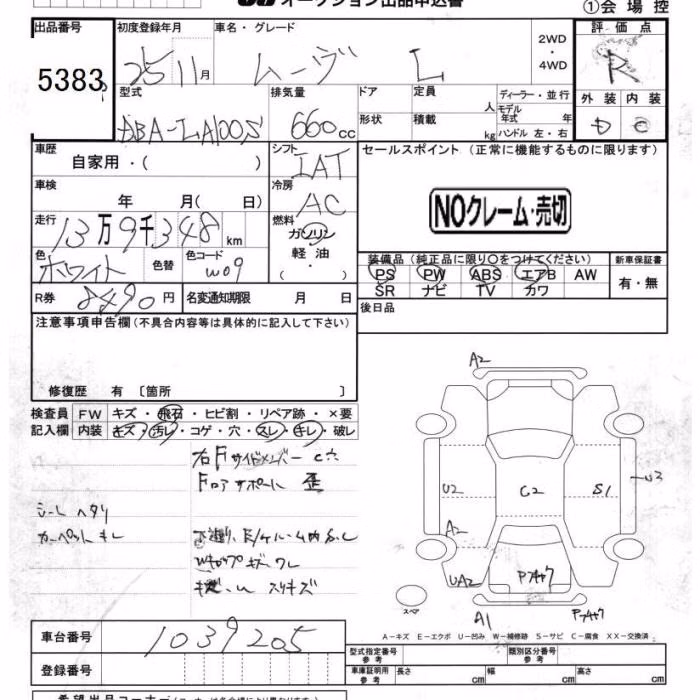 オークション出品申込書
①会場控
出品番号 初度登録年月 車名・グレード 2WD・4WD 評価点
5383 25 11月 ムーヴ L R
型式 排気量 ドア 定員 人 ディーラー・並行 外装 内装
DBA-LA100S 660cc 形状 積載 kg モデル年式 年 ハンドル 左・右 D
車歴 シフト セールスポイント (正常に機能するものに限ります)
自家用・( ) IAT
車検 冷房
年 月( 日) AC
NOクレーム・売切
走行 燃料
13万9千348km ガソリン
軽油
・( )
色 色替 色コード 装備品 (純正品に限り○をつけてください) 新車保証書
ホワイト W09 PS PW ABS エアB AW 有・無
SR ナビ TV カワ
R券 8490円 名変通知期限 月 日
後日品
注意事項申告欄(不具合内容等は具体的に記入して下さい)
修復歴 有 〔箇所 〕
A2
検査員 FW キズ・飛石・ヒビ割・リペア跡・×要
記入欄 内装 キズ・汚レ・コゲ・穴・スレ・キレ・破レ
右Fサイドメンバー C穴
Fロアサポート 歪
シート ヘタリ
カーペット キレ
下廻り、E/ルーム内 S、C
キズ ワレ
スリキズ
U2 C2 S1 U3
A2
UA2
スペア
A1
A−キズ E−エクボ U−凹み W−補修跡 S−サビ C−腐食 XX−交換済
車台番号 1039205
型式指定番号 参考 類別区分番号 参考
登録番号 車庫証明用 参考 長さ cm 幅 cm 高さ cm
希望出品コーナー